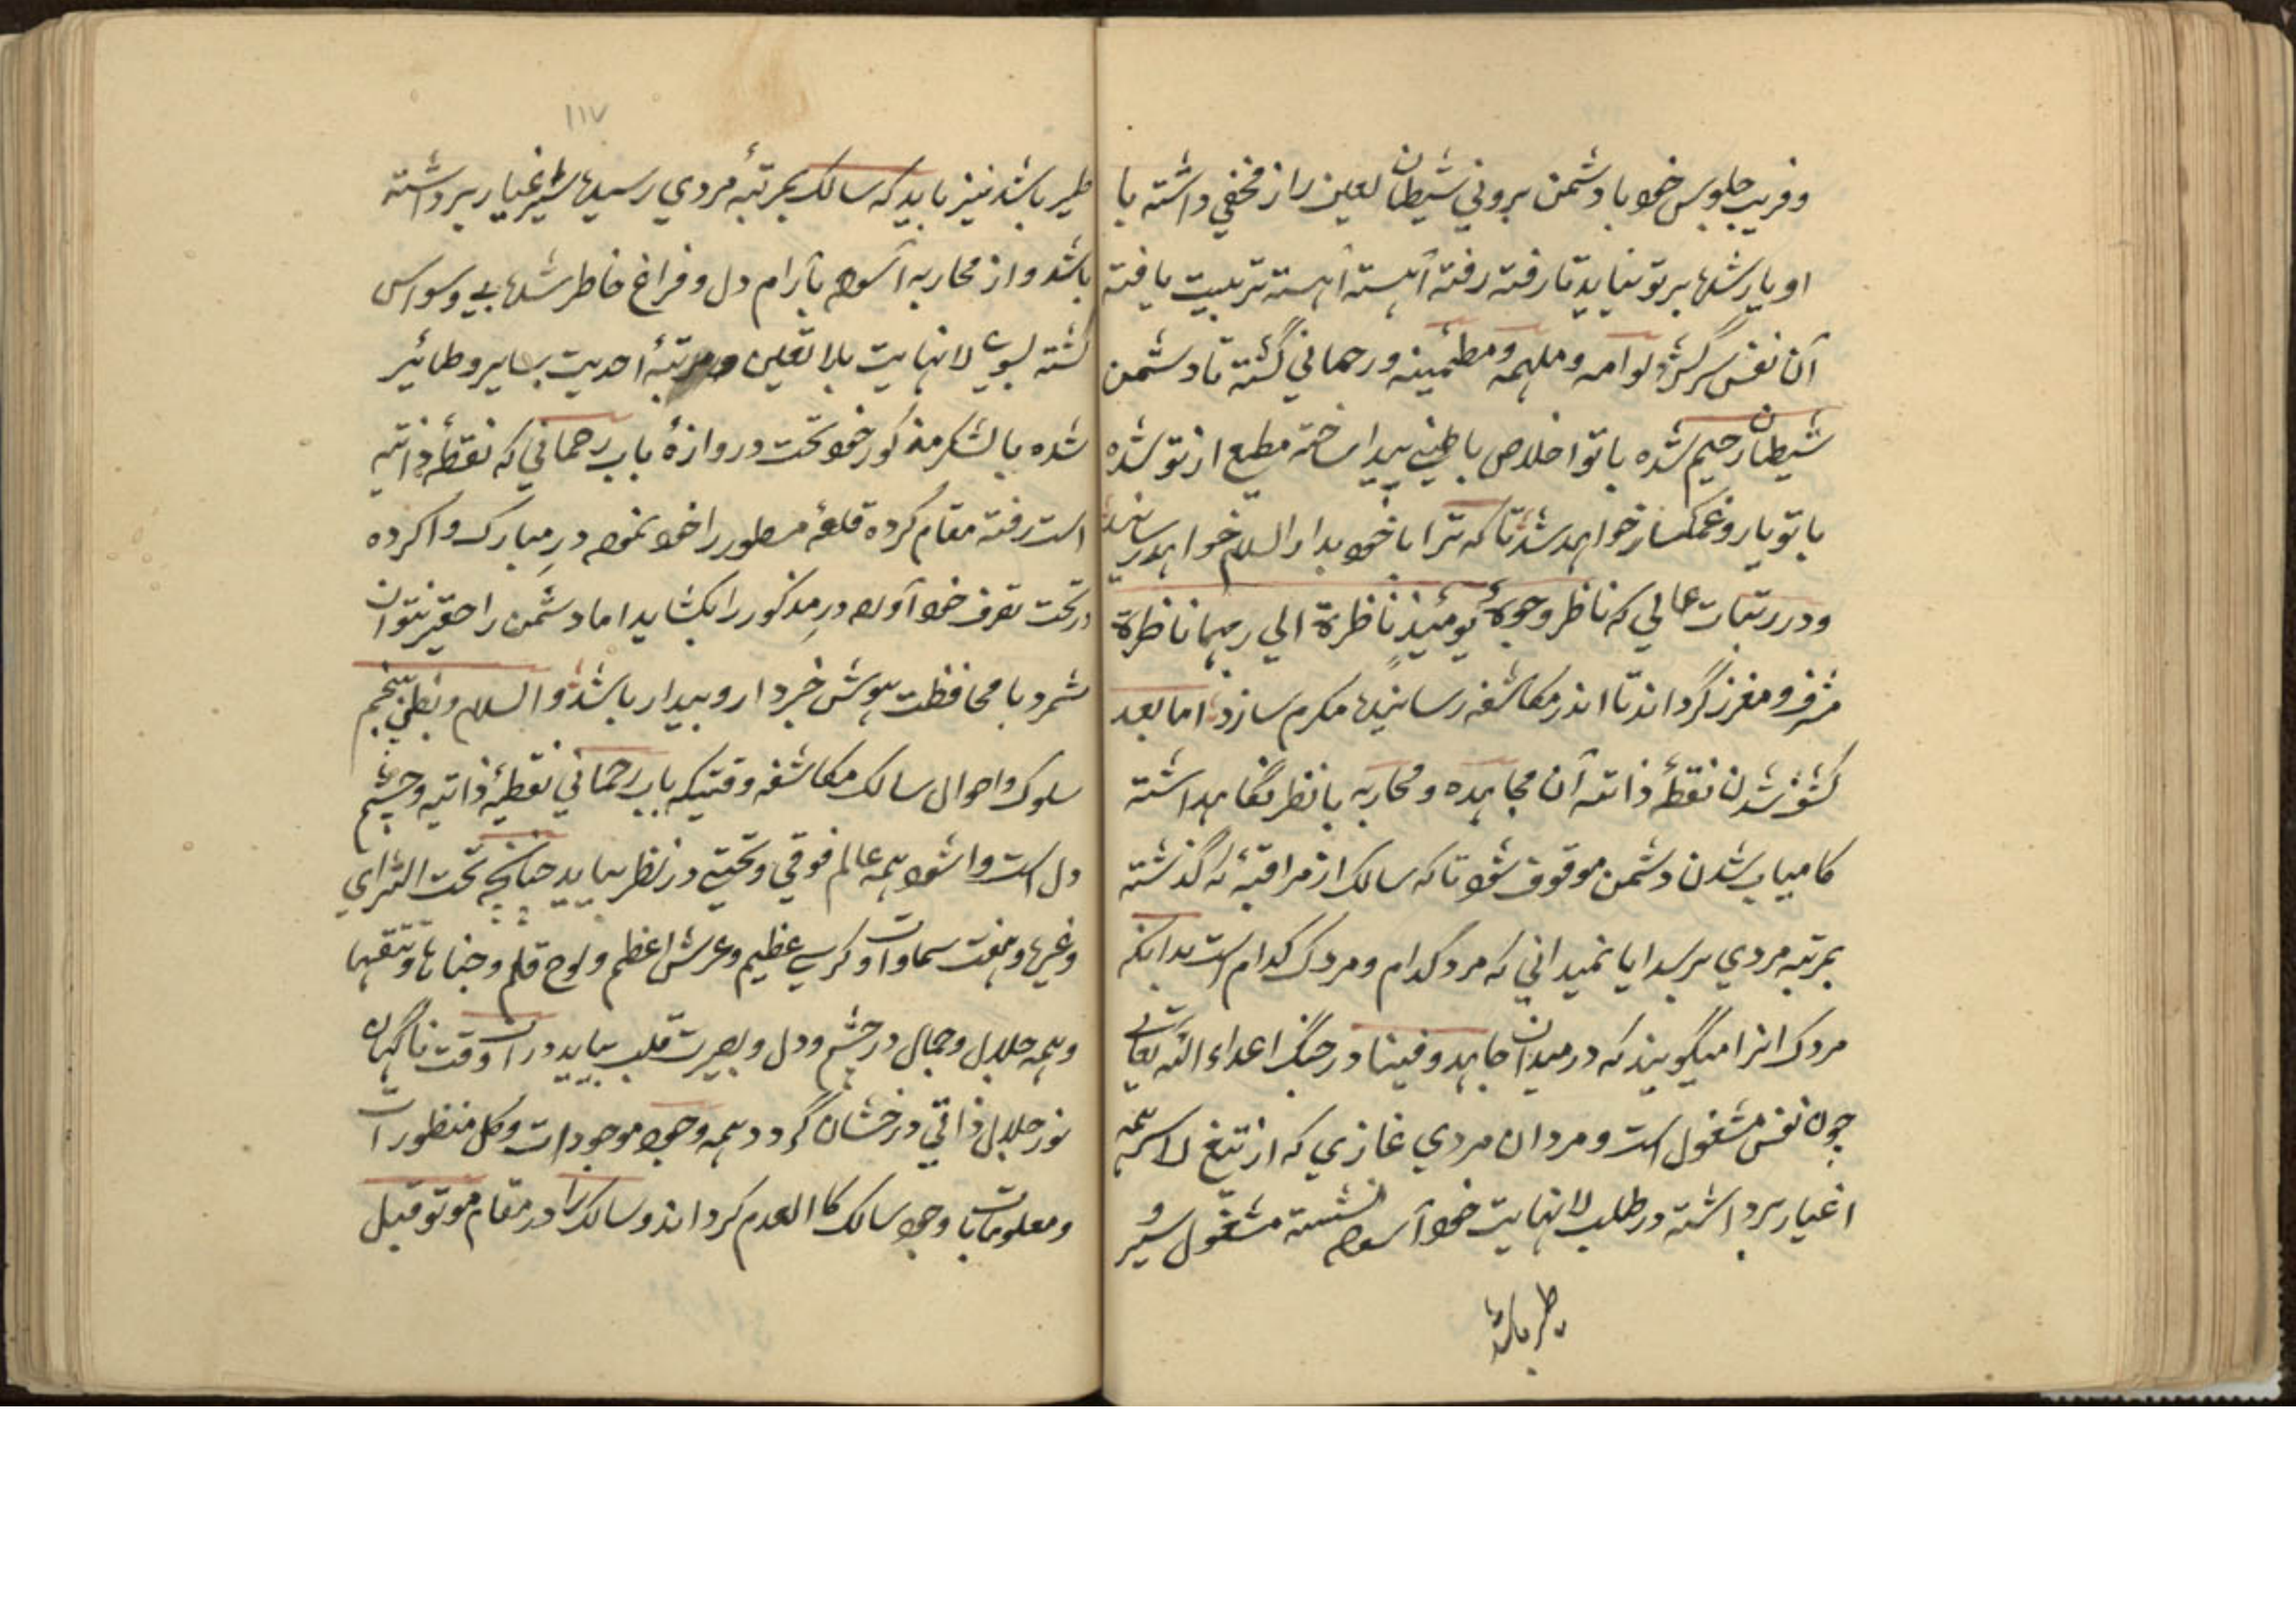 وفریب جلوس خود با دشمن برونی شیطان لعین راز مخفی داشته با
او یار شده بر تو نیاید تا رفته رفته آهسته آهسته تربیت یافته
آن نفس سرکش لوامه و ملهمه و مطمئینه و رحمانی گشته تا دشمن
شیطان رجیم شده با تو اخلاص باطنی پیدا ساخته مطیع از تو شده
با تو یار و غمکسار خواهد شد تا که ترا با خود بدار السلام خواهد رسانید
و در رتبات عالی که ناظر وجوهٌ یومئیذٍ ناظرة الی ربها ناظرة
مشرف و معزز گرداند تا اندر مکاشفه رسانیده مکرم سازد اما بعد
کشف شدن نقطهٔ ذاتیه آن مجاهده و محاربه با نظر نگاهداشته
کامیاب شدن دشمن موقوف شود تا که سالک از مراقبهٔ لا گذشته
بمرتبه مردی برسد ایا نمیدانی که مرد کدام و مردک کدام است بدانکه
مردک انرا میگویند که در میدان جاهدوفینا در جنگ اعداء الله تعالی
چون نفس مشغول است و مردان مردی غازی که از تیغ لا سر همه
اغیار برداشته در طلب لانهایت خود آسوده نشسته مشغول سیر و
طیر باشد
۱۱۷
طیر باشد نیز باید که سالک بمرتبهٔ مردی رسیده سر اغیار برداشته
باشد و از محاربه آسوده بآرام دل و فراغ خاطر شده بی وسواس
گشته بسوی لانهایت بلا تعین و مرتبهٔ احدیت بسایر و طائیر
شده با لشکر مذکور خود تحت دروازهٔ باب رحمانی که نقطهٔ ذاتیه
است رفته مقام کرده قلعهٔ مسطور را خود نموده درِ مبارک وا کرده
در تحت تصرف خود آورده درِ مذکور را بکشاید اما دشمن را حقیر نتوان
شمرد با محافظت هوش خبردار و بیدار باشد والسلام و بطن پنجم
سلوک و احوال سالک مکاشفه وقتیکه باب رحمانی نقطهٔ ذاتیه و چشم
دل است وا شود همه عالم فوقی و تحتی در نظر بیاید چنانچه تحت الثرای
وغیره و هفت سماوات و کرسی عظیم و عرش اعظم و لوح قلم و جنانها و
وهمه جلال و جمال در چشم و دل و بصیرت قلب بیاید در ان وقت ناگهان
نور جلال ذاتی درخشان گردد همه وجود موجودات و کل منظورات
ومعلومات با وجود سالک کا العدم گرداند و سالک را در مقام موتو قبل